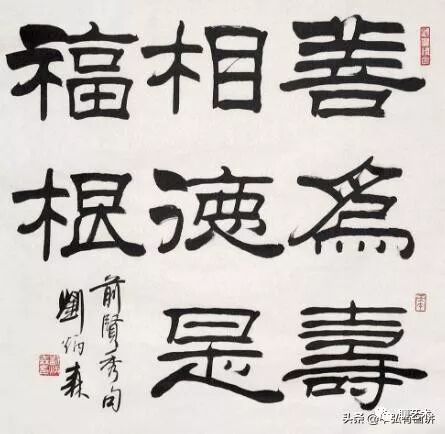 善爲壽
相德是
福根
前賢秀句
劉炳森
头条